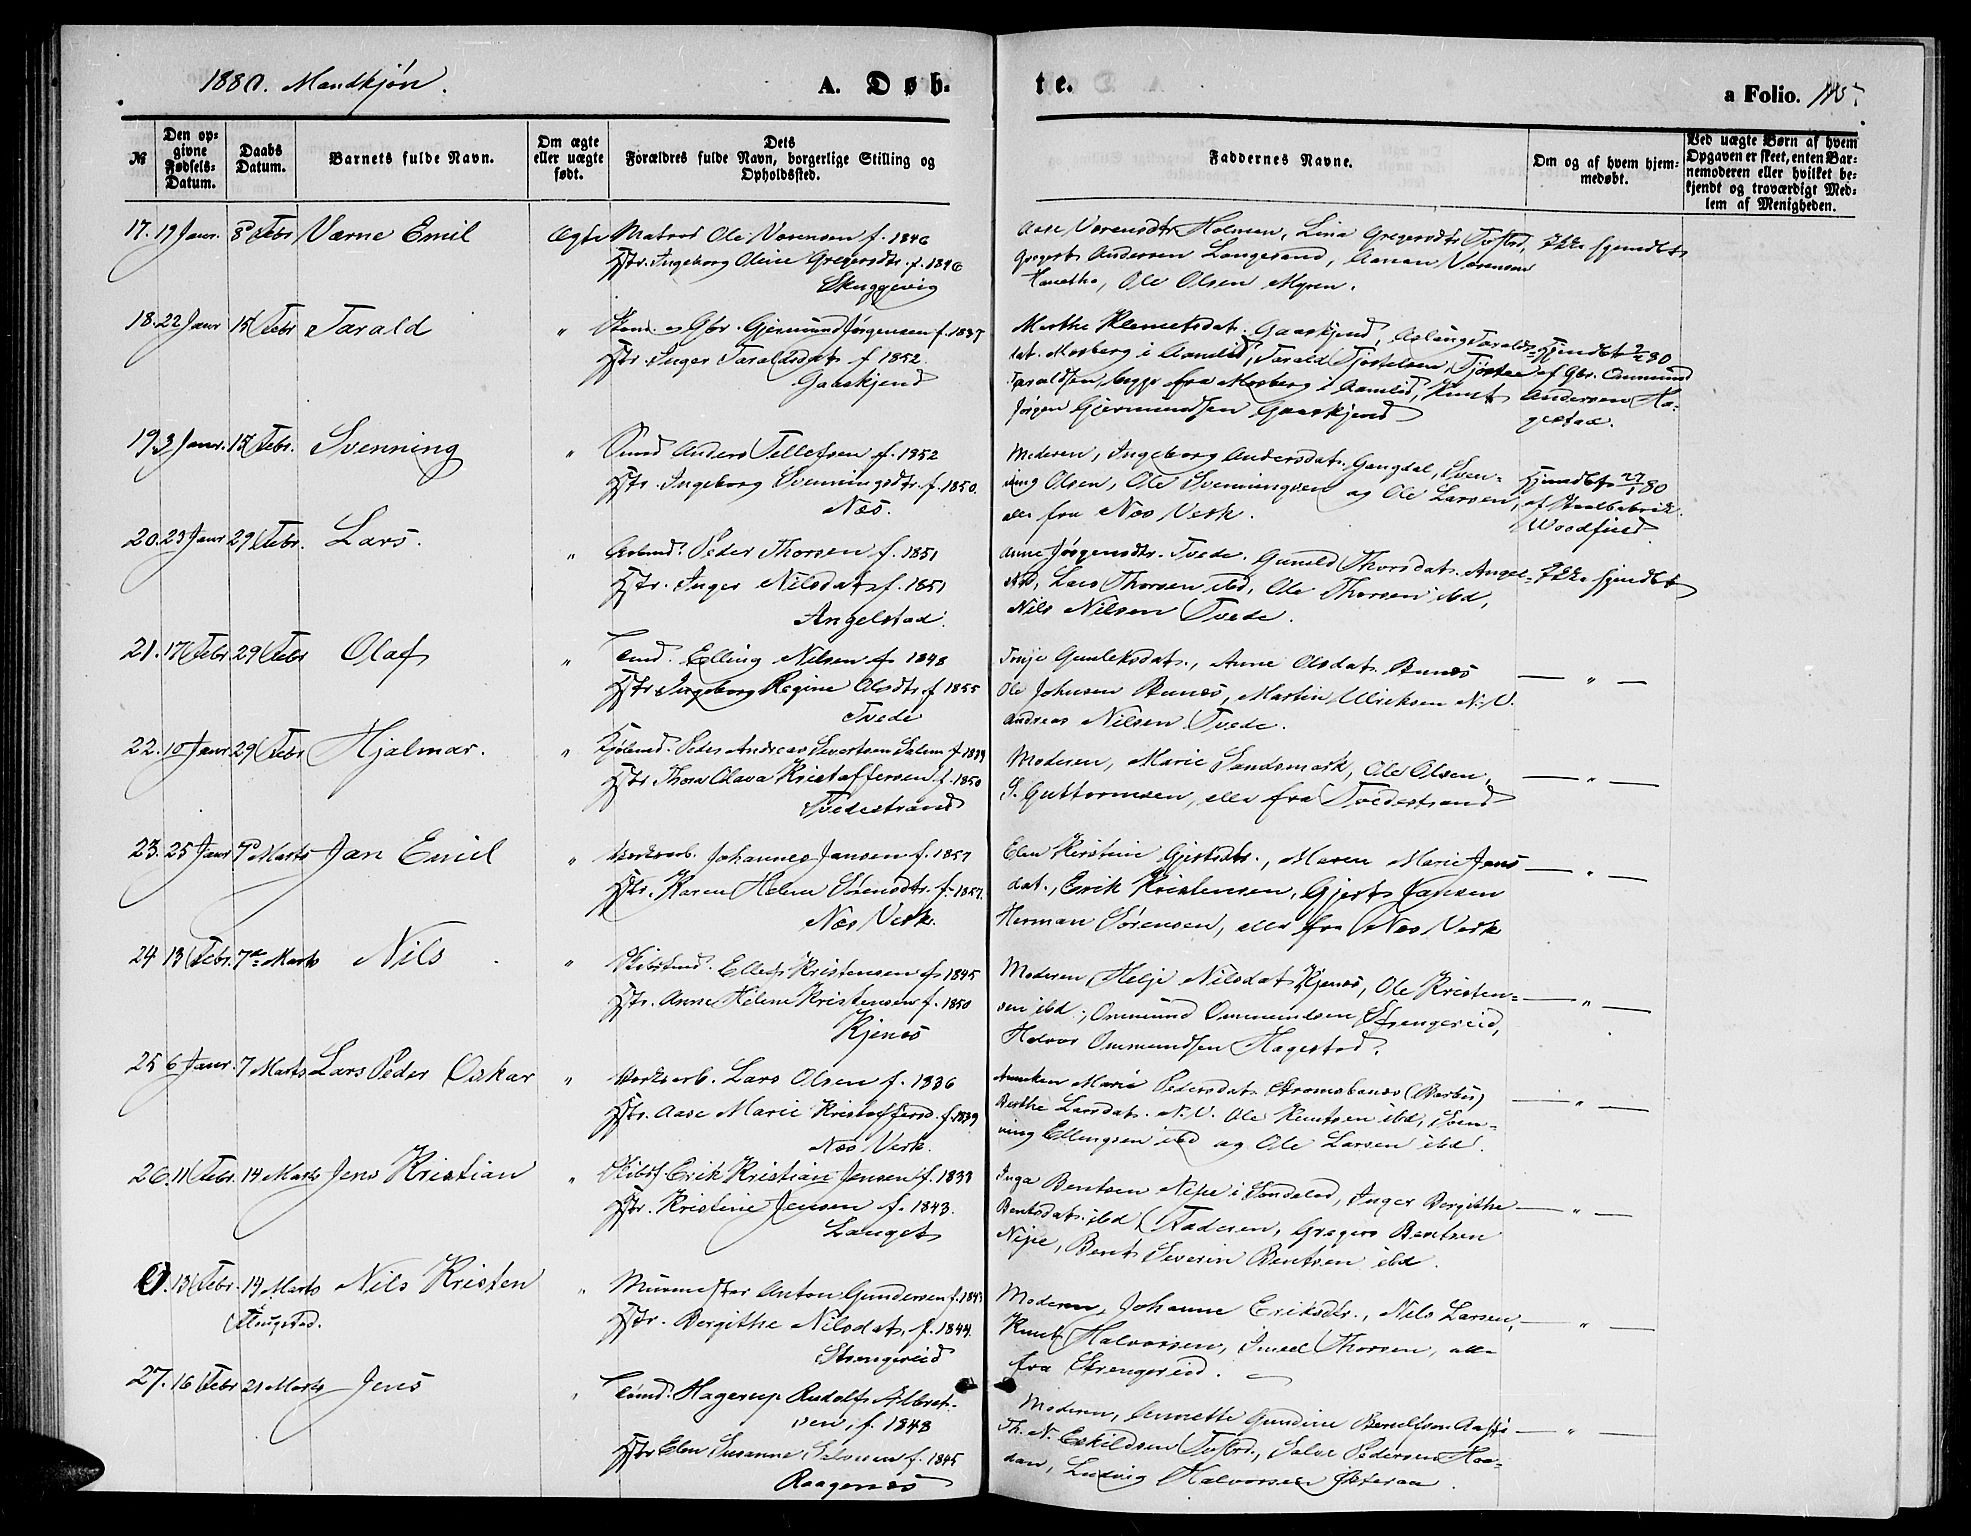 1880. Mandkjøn.
A. Døb-
te.
a Folio. 115.
№
Den op-
givne
Fødsels-
Datum.
Daabs
Datum.
Barnets fulde Navn.
Om ægte
eller uægte
født.
Dets
Forældres fulde Navn, borgerlige Stilling og
Opholdssted.
Faddernes Navne.
Om og af hvem hjem-
medøbt.
Ved uægte Børn af hvem
Opgaven er skeet, enten Bar-
nemoderen eller hvilket be-
kjendt og troværdigt Med-
lem af Menigheden.
17. 19 Janr. 8 Febr Værne Emil Ægte Matros Ole Vorensen f. 1846
Hstr. Ingeborg Olene Gregersdtr. f. 1846
Skuggevig
Aase Vorensdtr Holmen, Lina Gregersdtr Tvsted,
Gregert Andersen Langesand, Aanen Vorensen
Ole Olsen Myren.
Ikke hjemdbt
18. 22 Janr 15 Febr Tarald " Gbr. Gjermund Jørgensen f. 1837
Hstr. Inger Taraldsdat. f 1852.
Gaaskjend
Marthe Klemetsdat. Gaaskjend, Aslaug Taralds-
dat. Mosberg i Aamlid, Tarald Tjostelsen, Tjøstel
Taraldsen, begge fra Mosberg i Aamlid, Knut
Jørgen Gjermundsen Gaaskjend
Hjemdbt 2/2 80
af Gbr. Ommund
Andersen Ha-
gestad.
19. 3 Janr. 15 Febr. Svenning " Anders Tellefsen f. 1852
Hstr. Ingeborg Svenningsdtr. f. 1850.
Næs.
Moderen, Ingeborg Andersdat. Gangdal, Sven-
ning Olsen, Ole Svenningsen og Ole Larsen,
alle fra Næs Verk.
Hjemdbt 27/1 80
af Staalfabrik.
Woodfield
20. 23 Janr 29 Febr. Lars. " Arbmd. Peder Thorsen f. 1851
Hstr. Inger Nilsdat. f. 1851
Angelstad.
Anne Jørgensdtr. Tvede. Gunild Thorsdat. Angel-
stad, Lars Thorsen ibd, Ole Thorsen ibd,
Nils Nilsen Tvede.
Ikke hjemdbt
21. 17 Febr. 29 Febr Olaf " Tmd. Elling Nilsen f. 1848
Hstr. Ingeborg Regine Olsdtr. f 1855
Tvede
Gunleksdat., Anne Olsdat. Bunæs
Ole Johnsen Bunæs, Martin Ulriksen N. V.
Andreas Nilsen Tvede.
— " —
22. 10 Janr 29 Febr Hjalmar. " Kjøbmd. Peder Andreas Sivertsen Salem f. 1839
Hstr Thora Olava Kristoffersen f. 1850
Tvedestrand
Moderen, Marie Sandsmark, Ole Olsen,
S. Guttormsen, alle fra Tvedestrand
— " —
23. 25 Janr 7 Marts Jan Emil " Verksarb. Johannes Jansen f. 1857
Hstr. Karen Helene Sørensdtr. f. 1857.
Næs Verk.
Elen Kirstine Gjertsdtr., Maren Marie Jans
dat., Erik Kristensen, Gjert Jansen
Herman Sørensen, alle fra Næs Verk
— " —
24 13 Febr. 7de Marts Nils " Skibstmd. Ellef Kristensen f. 1845
Hstr. Anne Helene Kristensen f. 1850
Kjenæs
Moderen Helje Nilsdat Kjenæs, Ole Kristen-
sen ibd., Ommund Ommundsen Strengereid,
Halvor Ommundsen Hagestad.
— " —
25 6 Janr. 7 Marts Lars Peder Oskar " Verksarb. Lars Olsen f. 1836
Hstr. Aase Marie Kristoffersd. f. 1839
Næs Verk.
Anneken Marie Pedersdat. Stromsbunes (Barbu)
Berthe Larsdat. N. V. Ole Knutsen ibd, Sven-
ning Ellingsen ibd og Ole Larsen ibd.
— " —
26. 11 Febr. 14 Marts Jens Kristian " Skibsf. Erik Kristian Jensen f. 1838
Hstr. Kristine Jensen f. 1843.
Langet
Inga Bentsen Nipe i Søndeled, Inger Bergithe
Bentsdat. ibd, Faderen, Gregers Bentsen
Nipe, Bent Severin Bentsen ibd.
— " —
0. 13 Febr. 14 Marts Nils Kristen " Murmester Anton Gundersen f. 1843
Flangstad.
Hstr. Bergithe Nilsdat, f. 1844.
Strengereid
Moderen, Johanne Eriksdtr., Nils Larsen,
Knut Halvorsen, Thorsen, alle
fra Strengereid.
— " —
27. 16 Febr 21 Marts Jens " Tømd. Hagerup Rudolf Albret-
sen, f. 1848
Hstr Elen Susanne Salvesen f. 1845
Raagenæs
Moderen, Annette Gundine
Th. N. Eskildsen Tvstrd., Salve Pedersen Haa-
dan, Ludvig Halvorsen Østeraa.
— " —